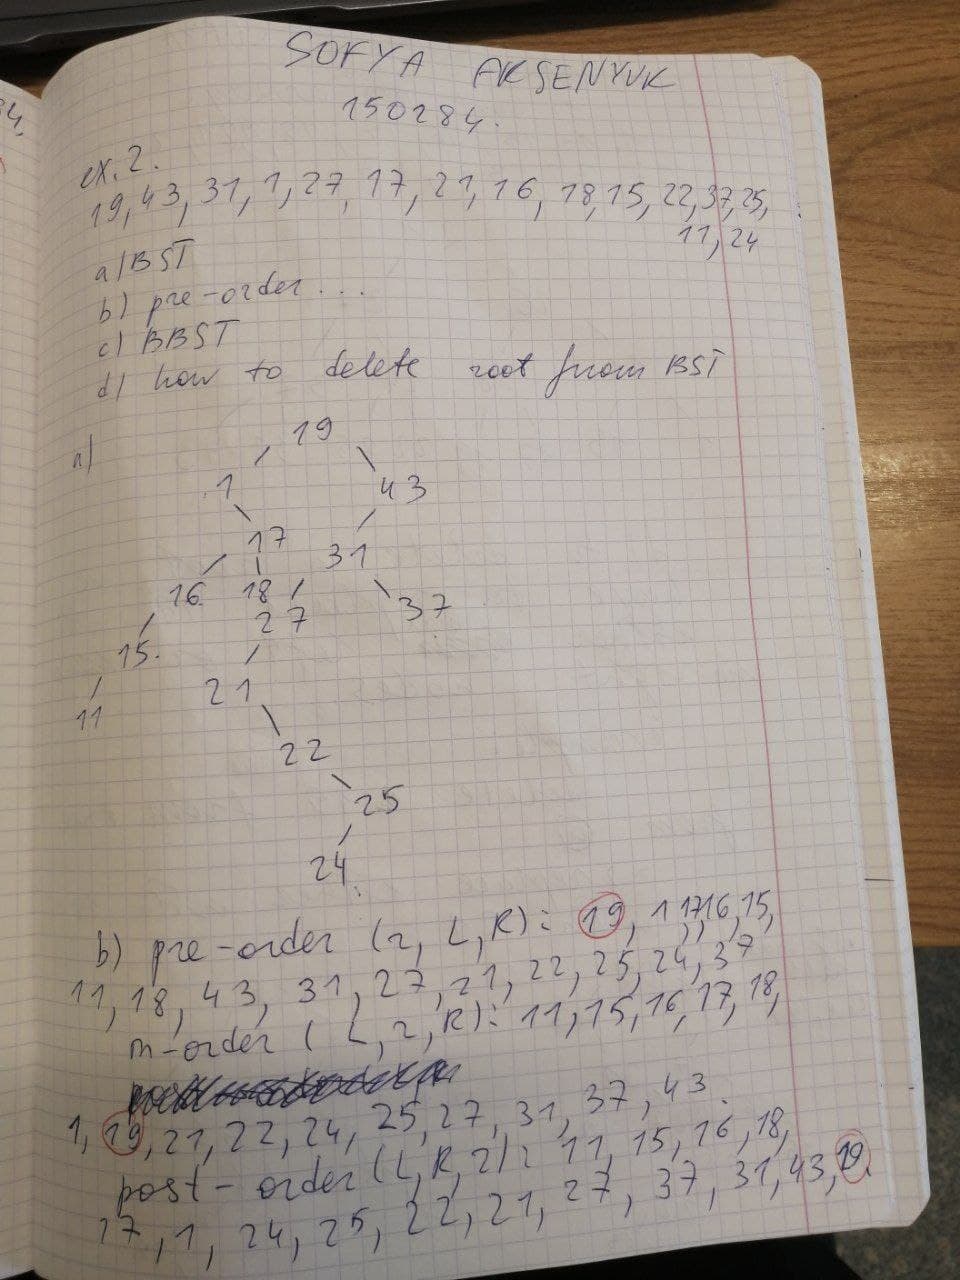 SOFYA AKSENYUK
150284.
ex. 2.
19, 43, 31, 1, 27, 17, 21, 16, 18, 15, 22, 37, 25,
11, 24
a) BST
b) pre-order ...
c) BBST
d) how to delete root from BST
a)
19
1 43
17 31
16 18 37
27
15.
21
11
22
25
24
b) pre-order (r, L, R): 19, 1, 17, 16, 15,
11, 18, 43, 31, 27, 21, 22, 25, 24, 37
in-order (L, r, R): 11, 15, 16, 17, 18,
1, 19, 21, 22, 24, 25, 27, 31, 37, 43.
post-order (L, R, r): 11, 15, 16, 18,
17, 1, 24, 25, 22, 21, 27, 37, 31, 43, 19.